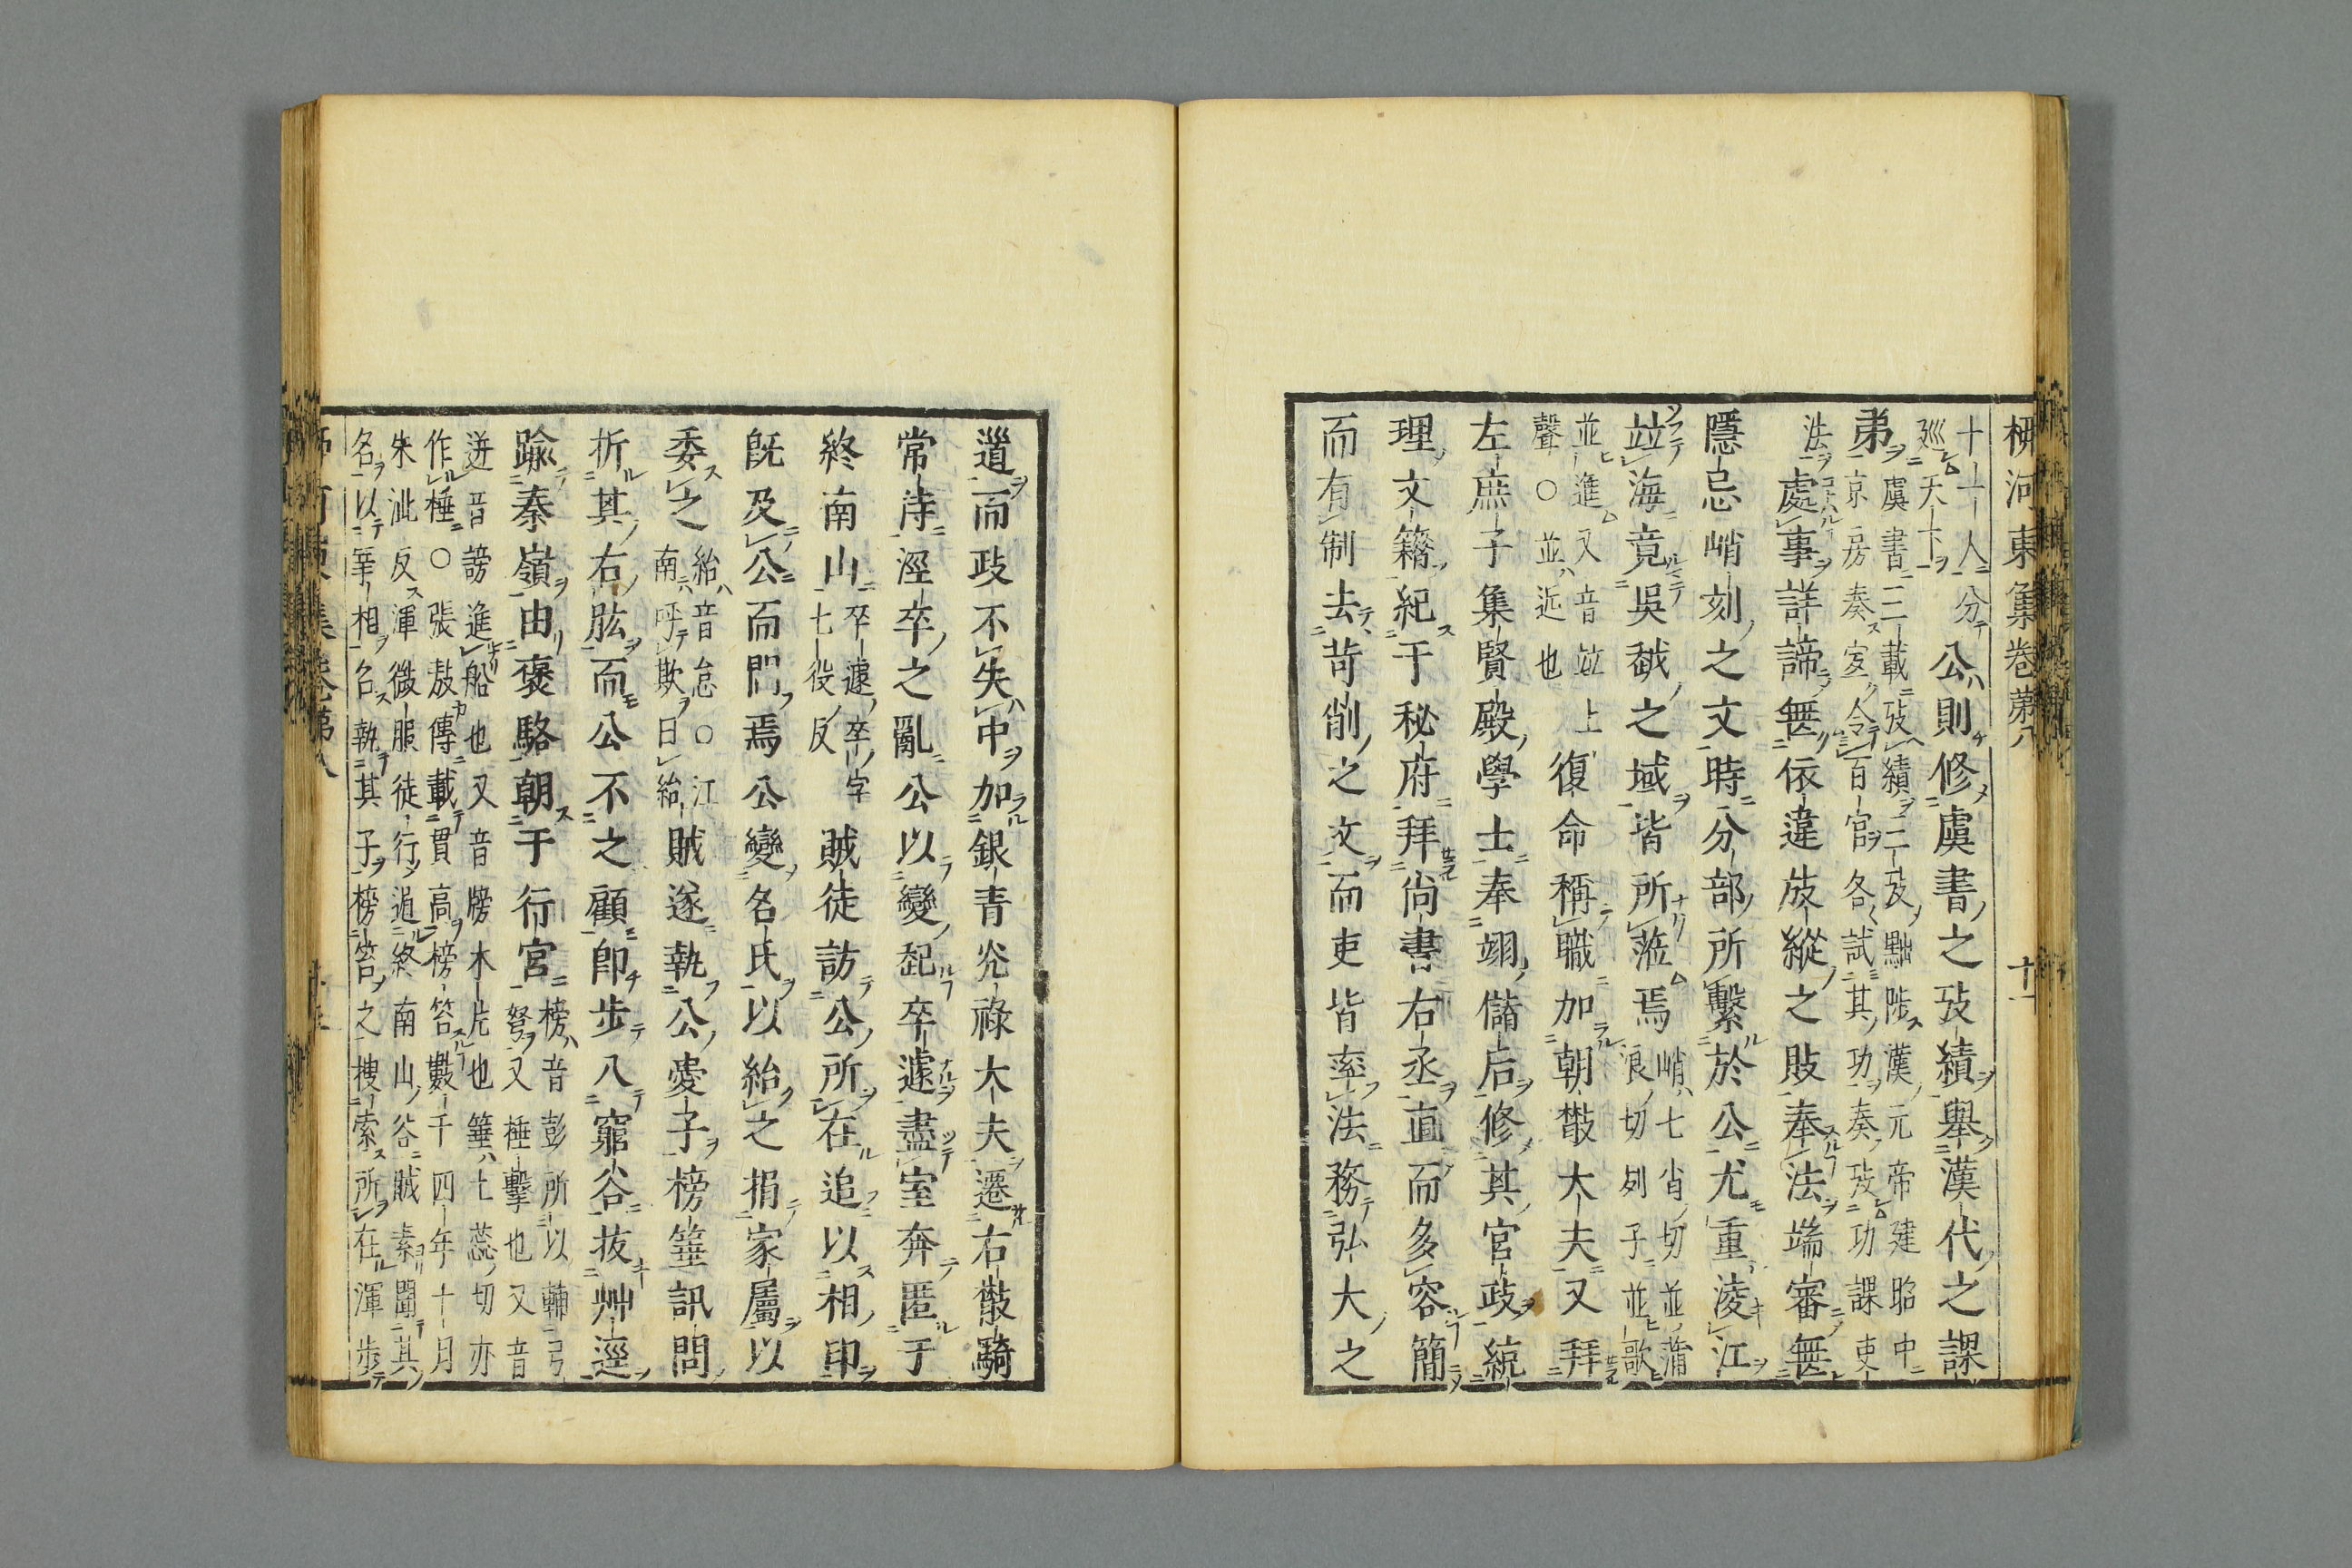 柳河東集卷第八 十一
十一人分
廵天下
公則修虞書之攷績舉漢代之課
第
虞書三載攷績三攷黜陟漢元帝建昭中
京房奏定令百官各試其功奏攷功課吏
法
處事詳諦無依違放縱之敗奉法端審無
隱忌峭刻之文時分部所繫於公尤重淩江
竝海竟吳越之域皆所蒞焉
峭七肖切並蒲
浪切列子並歌
並進又音竝上
聲○並近也
復命稱職加朝散大夫又拜
左庶子集賢殿學士奉翊儲后修其官政統
理文籍紀于秘府拜尚書右丞直而多容簡
而有制去苛削之文而吏皆率法務弘大之
道而政不失中加銀青光祿大夫遷右散騎
常侍涇卒之亂公以變起卒遽盡室奔匿于
終南山
卒遽卒字
七役反
賊徒訪公所在追以相印
既及公而問焉公變名氏以紿之捐家屬以
委之
紿音怠○江
南呼欺曰紿
賊遂執公愛子榜箠訊問
折其右肱而公不之顧卽步入窮谷拔艸逕
踰秦嶺由褒駱朝于行宮
榜音彭所以輔弓
弩又棰擊也又音
迸音謗進船也又音牓木片也箠七蕊切亦
作棰○張敖傳載貫高榜笞數千四年十月
朱泚反渾微服徒行遁終南山谷賊素聞其
名以宰相名執其子榜笞之搜索所在渾步